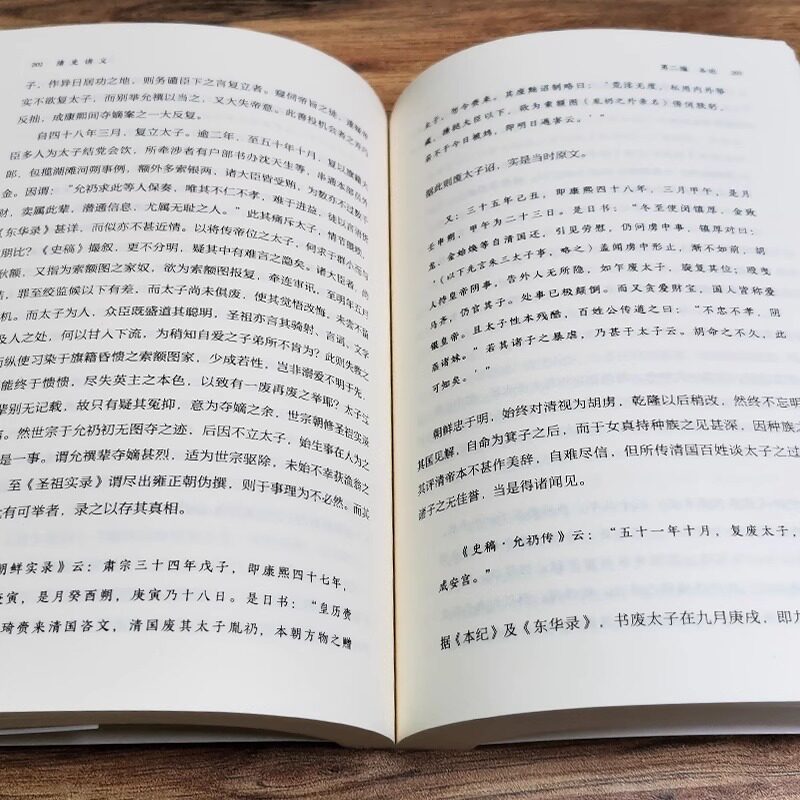 202 清史讲义
子，作异日居功之地，则务谴臣下之言复立者。窥伺帝旨之迹，逢迎希
实不欲复太子，而别举允禩以当之，又大失帝意。此善投机会者之弄巧
反拙，成康熙间夺嫡案之一大反复。
自四十八年三月，复立太子。逾二年，至五十年十月，复以旗籍大
臣多人为太子结党会饮，所牵涉者有户部书办沈天生等，串通本部员外
郎，包揽湖滩河朔事例，额外多索银两，诸大臣皆受贿，为数亦不过数千
金。因谓：“允礽求此等人保奏，唯其不仁不孝，难于进益，徒以言语货
财，实属此辈，潜通信息，尤属无耻之人。”此其痛斥太子，情节暧昧，
《东华录》甚详，而似亦不甚近情。以将传帝位之太子，何求于群小而与
朋比？《史稿》撮叙，更不分明，疑其中有难言之隐矣。诸大臣者，尚
秋额，又指为索额图之家奴，欲为索额图报复，牵连审讯，至明年五月
结，罪至绞监候以下有差，而太子尚未俱废，使其觉悟改悔，未尝不留
机。而太子为人，众臣既盛道其聪明，圣祖亦言其骑射、言词、文学
及人之处，何以甘入下流，为稍知自爱之子弟所不肯为？此则失教之
而纵使习染于旗籍昏愦之索额图家，少成若性，岂非溺爱不明于先，
能终于愦愦，尽失英主之本色，以致有一废再废之举耶？太子过
辈别无记载，故只有疑其冤抑，意为夺嫡之余，世宗朝修圣祖实录
。然世宗于允礽初无图夺之迹，后因不立太子，始生事在人为之
是一事。谓允禩辈夺嫡甚烈，适为世宗驱除，未始不幸获渔翁之
至《圣祖实录》谓尽出雍正朝伪撰，则于事理为不必然。而其
有可举者，录之以存其真相。
朝鲜实录》云：肃宗三十四年戊子，即康熙四十七年，
庚寅，是月癸酉朔，庚寅乃十八日。是日书：“皇历赍
琦赍来清国咨文，清国废其太子胤礽，本朝方物之赠
第二编 各论 203
太子，勿令赍来。其废黜诏制略曰：‘荒淫无度，私用内外帑
藏，捶挞大臣以下，欲为索额图（胤礽之外亲名）俱伺朕躬，
若不于今日被鸩，即明日遇害云。’”
据此则废太子诏，实是当时原文。
又：三十五年己丑，即康熙四十八年，三月甲午，是月
壬申朔，甲午为二十三日。是日书：“冬至使闵镇厚、金致
龙、金始焕等自清国还，引见劳慰，仍问虏中事，镇厚对曰：
‘（以下先言朱三太子事，略之）盖闻虏中形止，渐不如前，胡
人持皇帝阴事，告外人无所隐，如乍废太子，旋复其位；殴曳
马齐，仍官其子。处事已极颠倒。而又贪爱财宝，国人皆称爱
银皇帝。且太子性本残酷，百姓公传道之曰：“不忠不孝，阴
蒸诸妹。”若其诸子之暴虐，乃甚于太子云。胡命之不久，此
可知矣。’”
朝鲜忠于明，始终对清视为胡虏，乾隆以后稍改，然终不忘明
其国见解，自命为箕子之后，而于女真持种族之见甚深，因种族之
其评清帝本不甚作美辞，自难尽信，但所传清国百姓谈太子之过
诸子之无佳誉，当是得诸闻见。
《史稿·允礽传》云：“五十一年十月，复废太子，
咸安宫。”
据《本纪》及《东华录》，书废太子在九月庚戌，即九